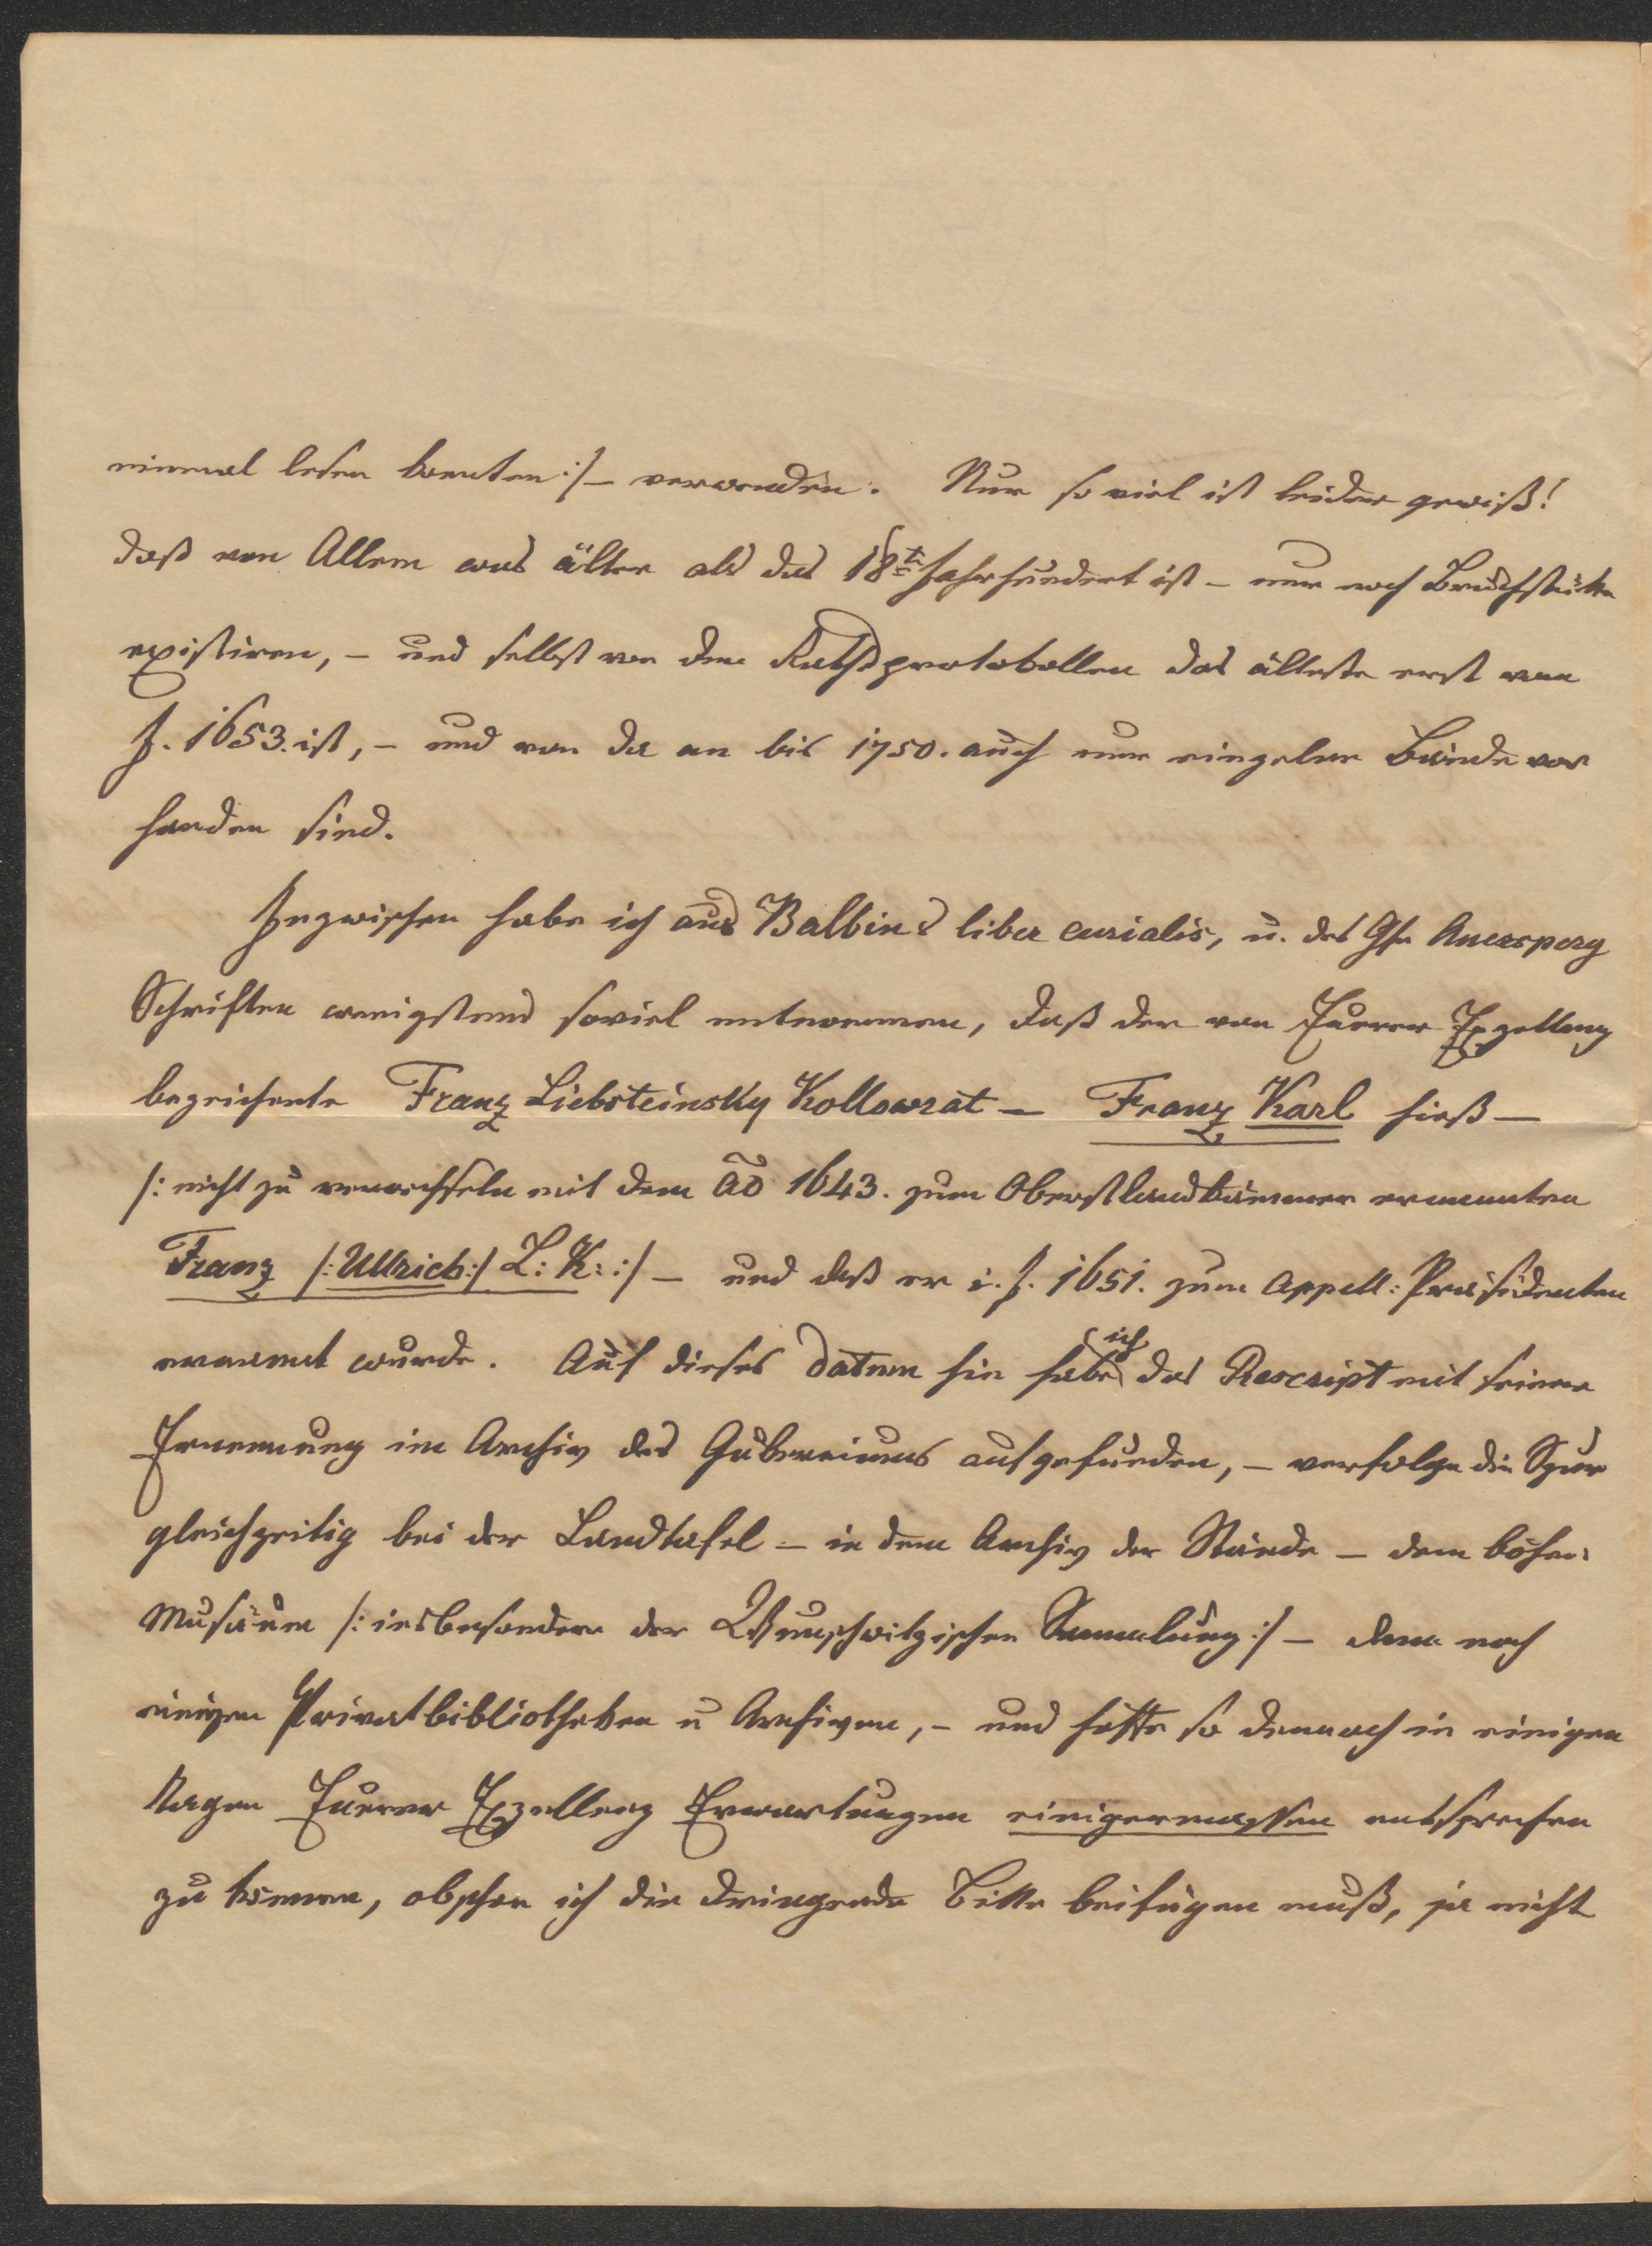 einmal lesen konnten :/ – verwenden. Nur so viel ist leider gewiß!
daß von Allem was älter als das 18te Jahrhundert ist – nur noch Bruchstücke
existiren, – und selbst von den Rathsprotokollen das älteste erst vom
J. 1653. ist, – und von da an bis 1750. auch nur einzelne Bände vor
handen sind.
Inzwischen habe ich aus Balbins liber curialis, u. des Gfn Auersperg
Schriften wenigstens soviel entnommen, daß der von Euerer Exzellenz
bezeichente Franz Liebsteinsky Kollowrat – Franz Karl hieß –
/: nicht zu verwechseln mit dem ao 1643. zum Oberstlandkämmer ernannten
Franz /: Ullrich :/ L: K: :/ – und daß er i. J. 1651. zum Appell: Präsidenten
ernannt wurde. Auf dieses Datum hin habe ich das Rescript mit seiner
Ernennung im Archiv des Guberniums aufgefunden, – verfolge die Spur
gleichzeitig bei der Landtafel – in dem Archiv der Stände – dem böhm:
Musäum /: insbesondere der Wunschwitzischen Sammlung :/ – dann noch
einigen Privatbibliotheken u Archiven, – und hoffe so demnach in einigen
Tagen Euerer Exzellenz Erwartungen einigermassen entsprechen
zu können, obschon ich die dringende Bitte beifügen muß, ja nicht